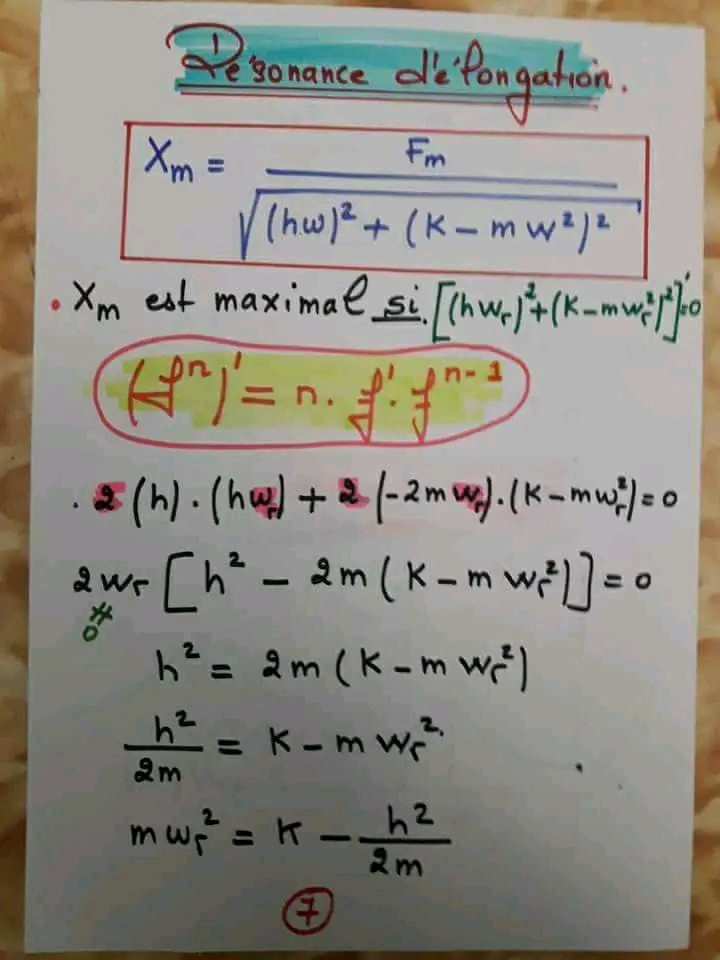 Résonance d'élongation.
Xm = Fm / √((hω)² + (K – mω²)²)
• Xm est maximal si. [(hωr)² + (K – mωr²)²]' = 0
(fⁿ)' = n. f'. fⁿ⁻¹
. 2 (h). (hωr) + 2 (-2mωr). (K – mωr²) = 0
2ωr [h² – 2m (K – mωr²)] = 0
≠
0
h² = 2m (K – mωr²)
h² / 2m = K – mωr².
mωr² = K – h² / 2m
7